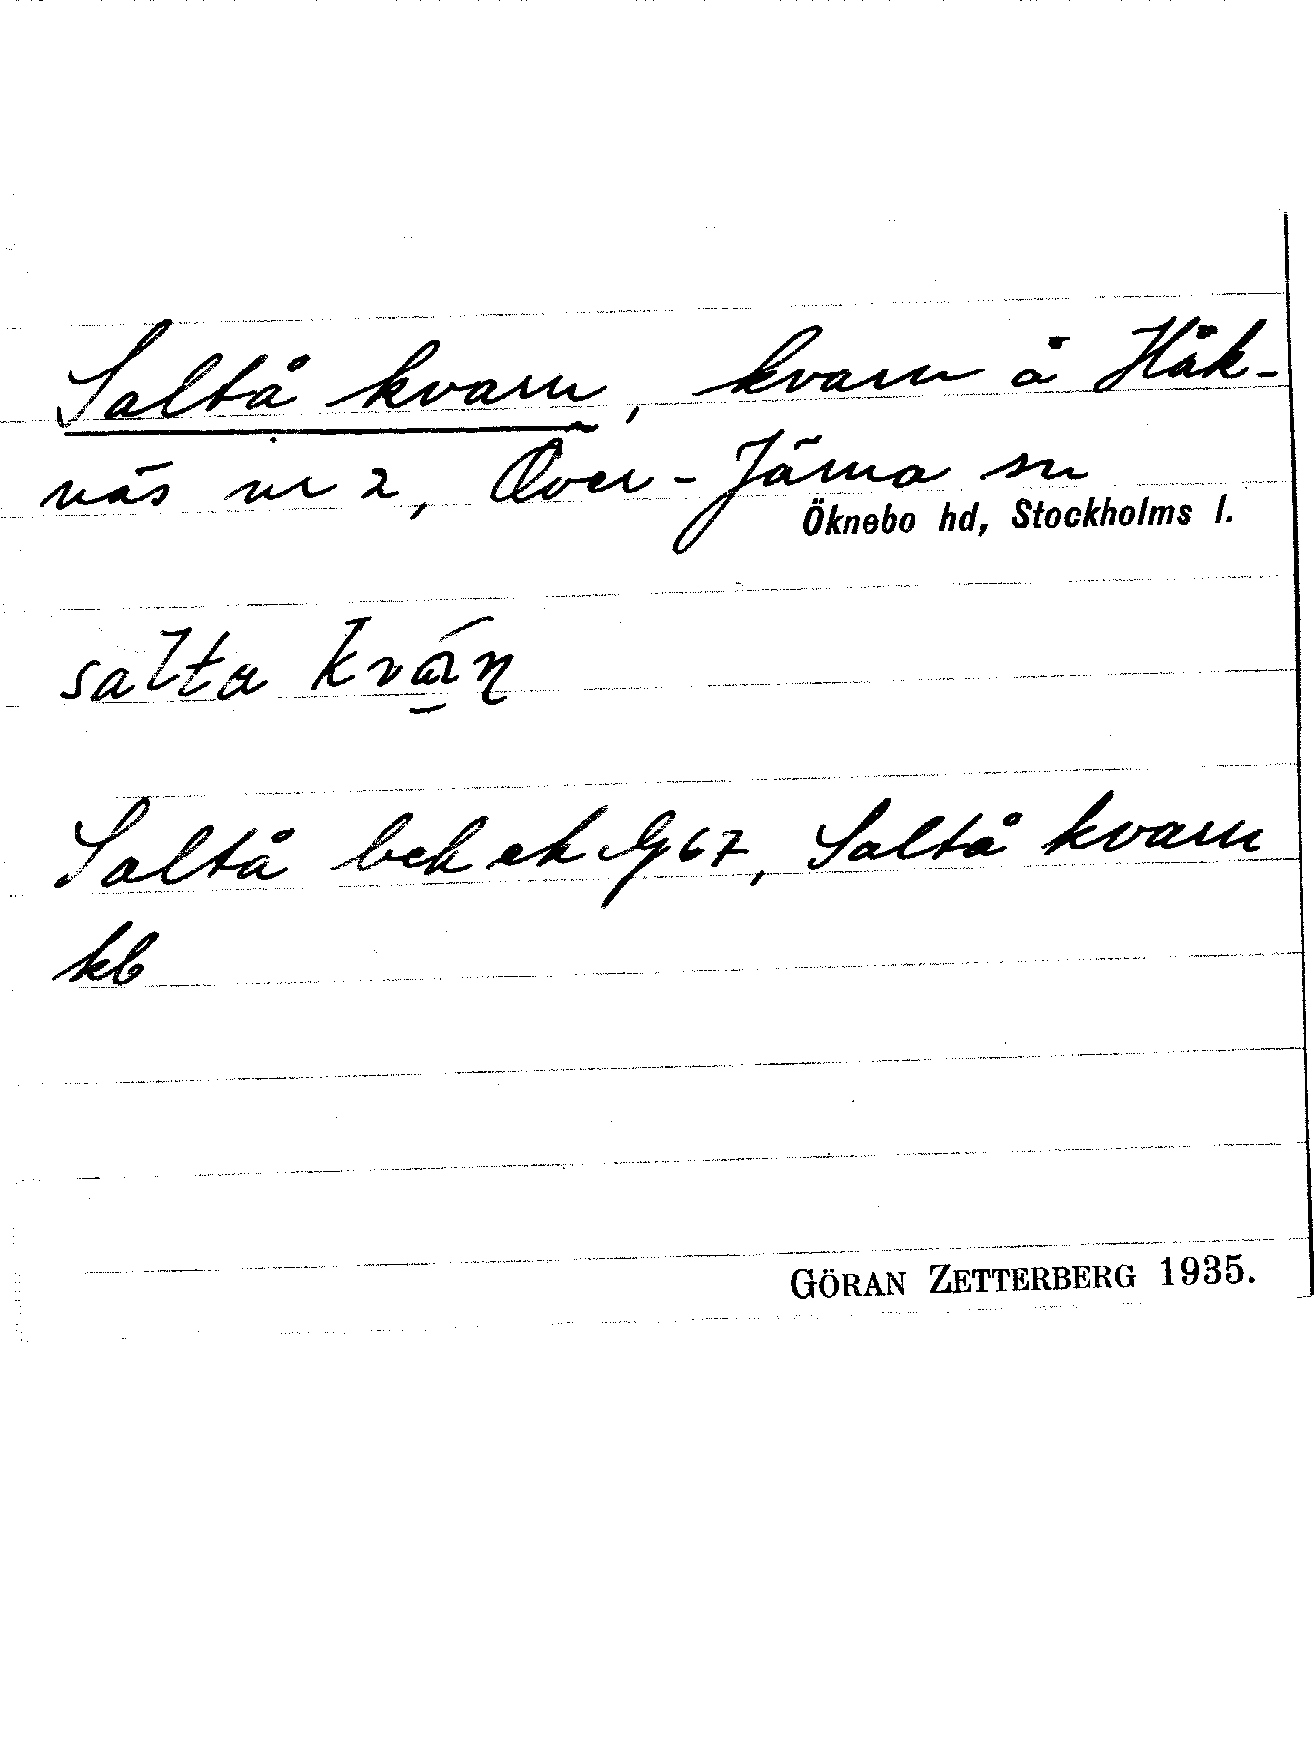 Saltå kvarn, kvarn å Håk-
näs nr 2, Över-Järna sn
Öknebo hd, Stockholms l.
salta kván
Saltå bek ek 67, Saltå kvarn
kb
GÖRAN ZETTERBERG 1935.